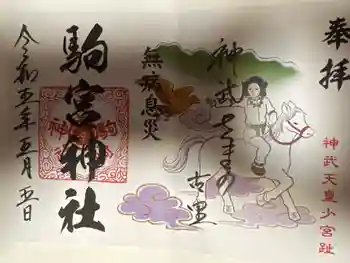 奉拝
神武天皇少宮趾
神武さまの
古里
無病息災
駒宮神社
令和五年五月五日